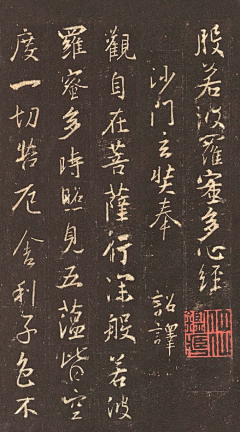 般若波羅蜜多心經
沙門玄奘奉　詔譯
觀自在菩薩行深般若波
羅蜜多時照見五蘊皆空
度一切苦厄舍利子色不